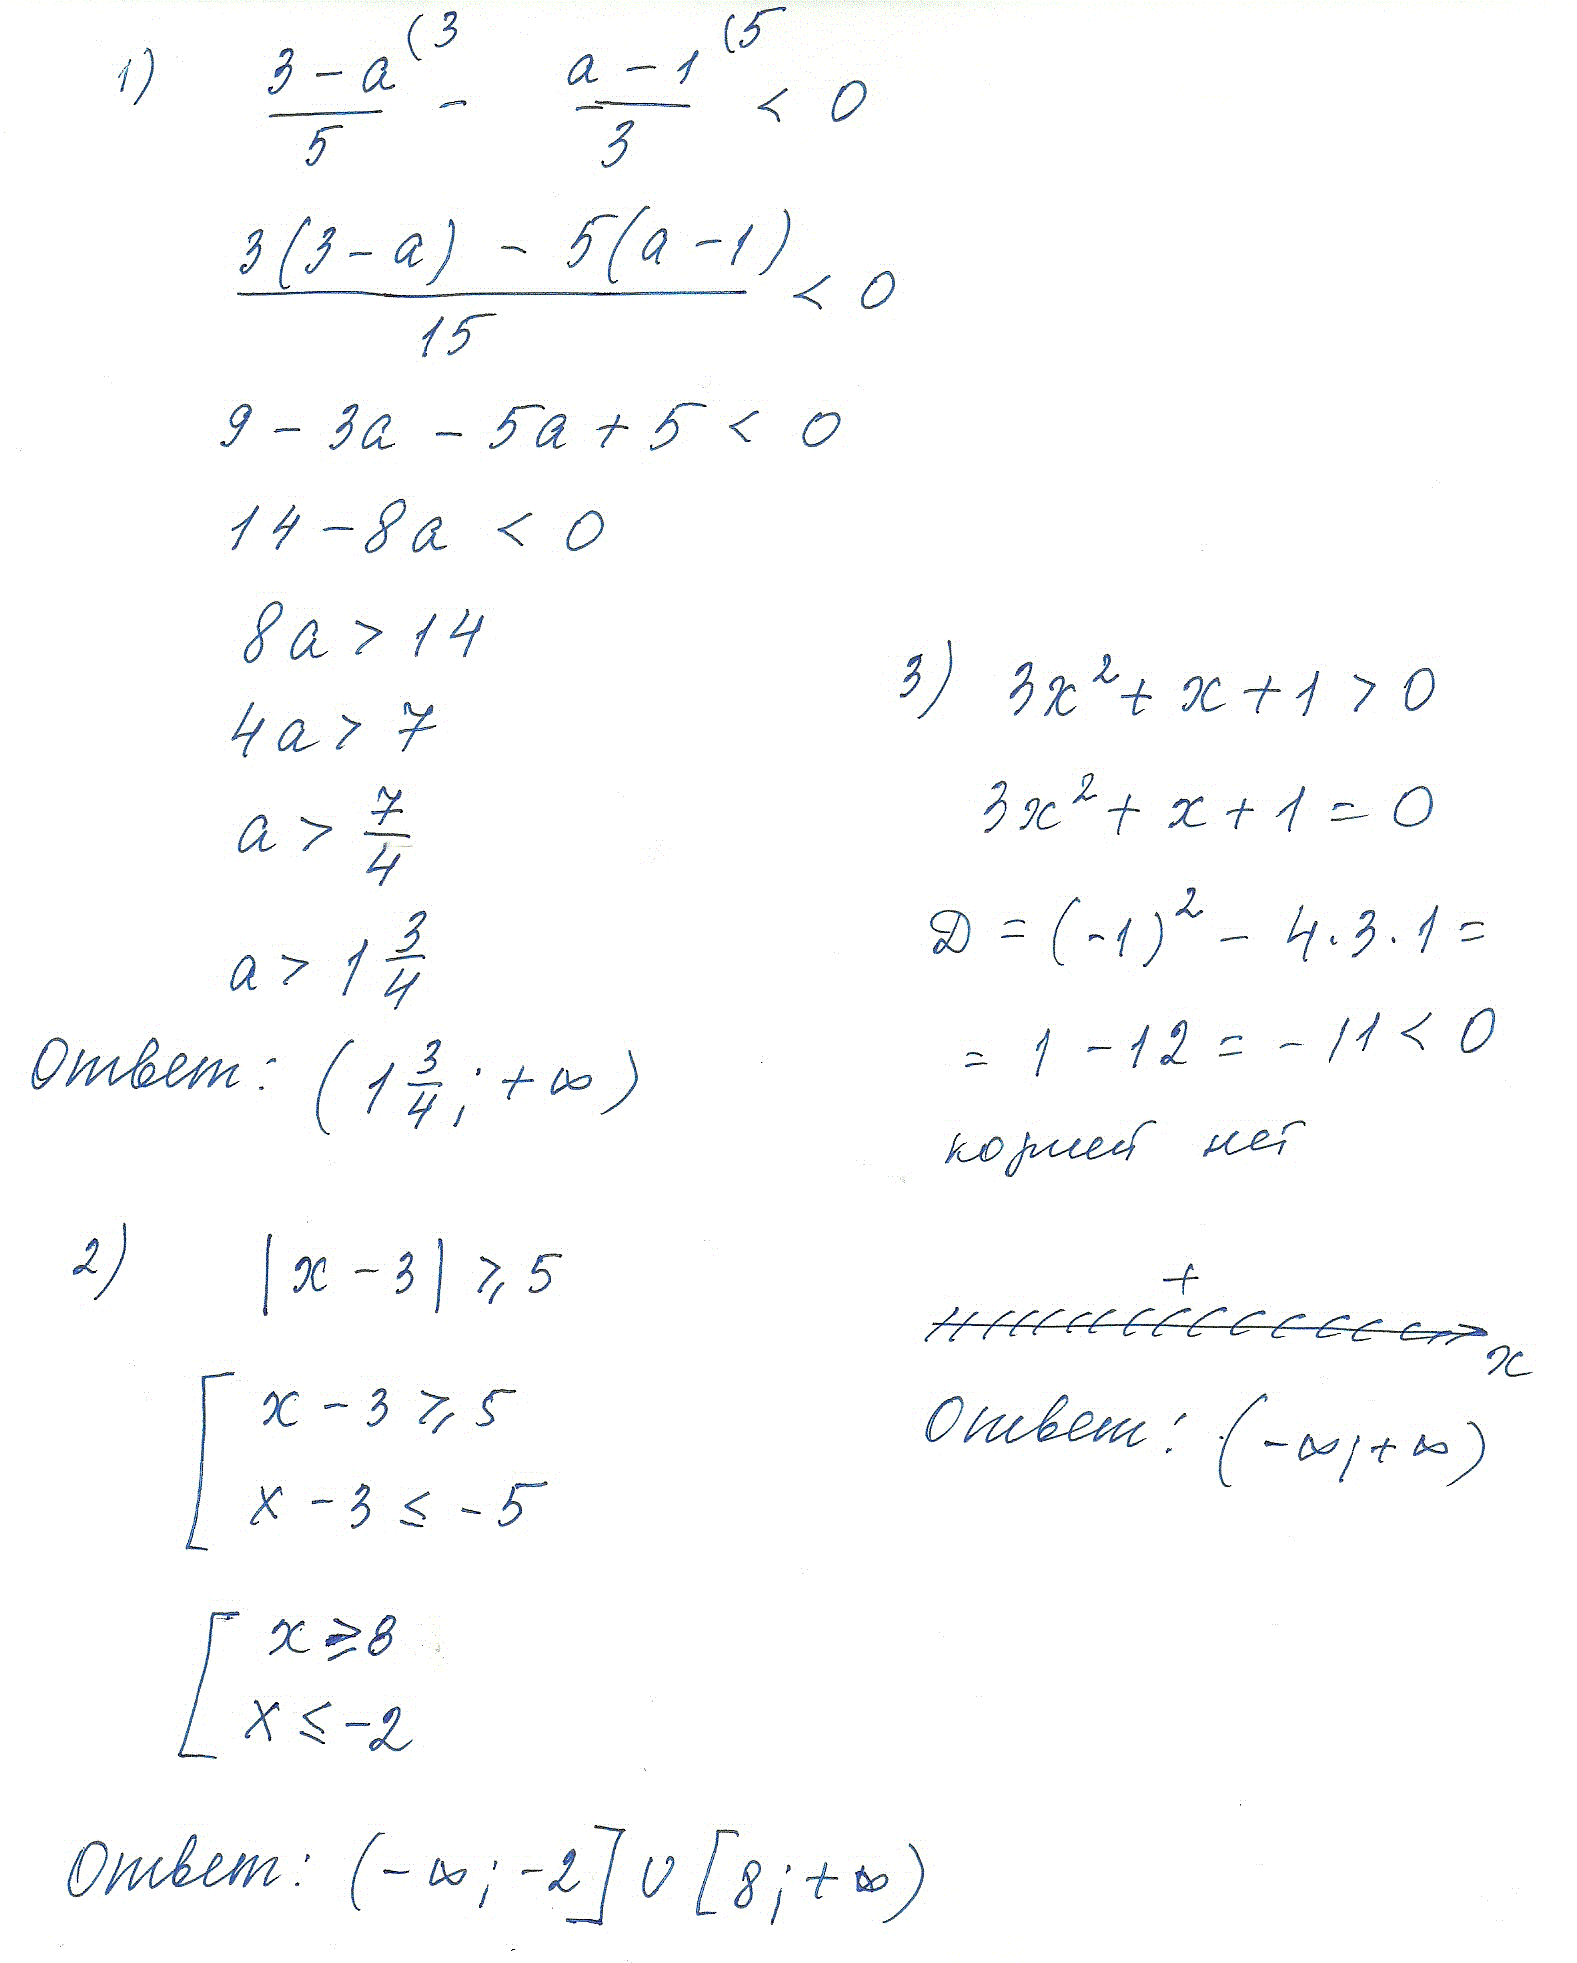 1) (3 - a)/5 ⁽³ - (a - 1)/3 ⁽⁵ < 0
(3(3 - a) - 5(a - 1))/15 < 0
9 - 3a - 5a + 5 < 0
14 - 8a < 0
8a > 14
4a > 7
a > 7/4
a > 1 3/4
Ответ: (1 3/4; +∞)
2) |x - 3| ≥ 5
[ x - 3 ≥ 5
x - 3 ≤ -5
[ x ≥ 8
x ≤ -2
Ответ: (-∞; -2] ∪ [8; +∞)
3) 3x² + x + 1 > 0
3x² + x + 1 = 0
D = (-1)² - 4·3·1 =
= 1 - 12 = -11 < 0
корней нет
+
x
Ответ: (-∞; +∞)